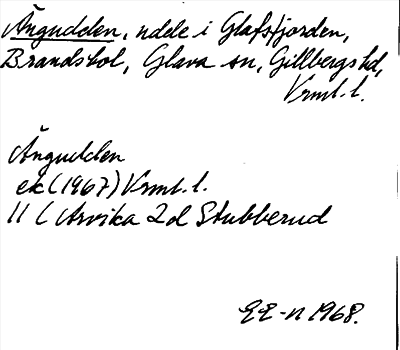 Ängudden, udde i Glafsfjorden,
Brandsbol, Glava sn, Gillbergs hd,
Vrml. l.
Ängudden
ek (1967) Vrml. l.
11 C Arvika 2d Stubberud
EE-n 1968.